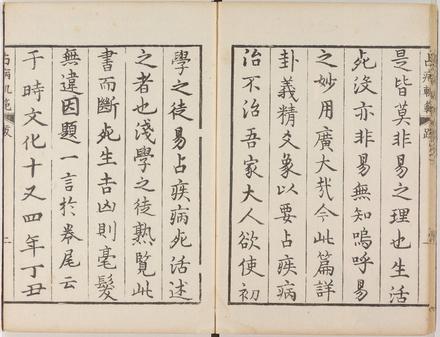 是皆莫非易之理也生活
死沒亦非易無知嗚呼易
之妙用廣大哉今此篇詳
卦義精爻象以要占疾病
治不治吾家大人欲使初
學之徒易占疾病死活述
之者也淺學之徒熟覽此
書而斷死生吉凶則毫髮
無違因題一言於卷尾云
于時文化十又四年丁丑